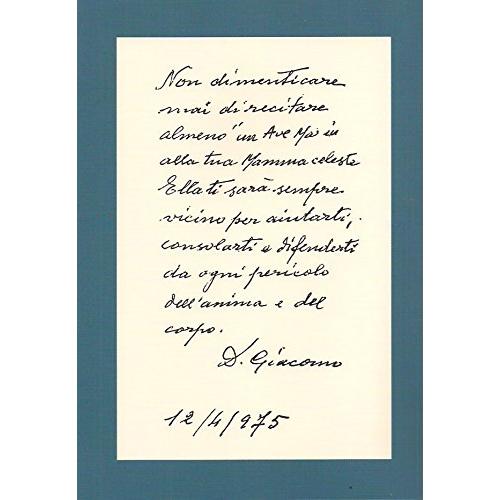 Non dimenticare
mai di recitare
almeno "un Ave Maria
alla tua Mamma celeste
Ella ti sarà sempre
vicino per aiutarti,
consolarti e difenderti
da ogni pericolo
dell'anima e del
corpo.
D. Giacomo
12/4/975